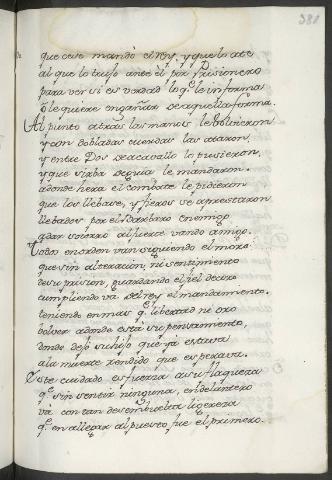 381
que cese mandò el rey, y que lo ate
al que lo trujo ante el por Prisionero
para ver si es verdad lo q.e le informa
ô le quiere engañar de aquella forma.
Al punto atras las manos le bolvieron
y con dobladas cuerdas las ataron,
y entre Dos de acavallo lo pusieron,
y que sirba de guia le mandaron.
adonde hera el combate le pidieron
que los llebase, y fieros se aprestaron
llebados por el Barbaro enemigo
a dar socorro al fuerte vando amigo.
Todos en orden van siguiendo el moro
que sin alteracion, ni sentimiento
de su prision, guardando el fiel decoro
cumpliendo va del rey el mandamiento.
teniendo en mas q.e libertad ni oro
bolver adonde està su pensamiento,
donde dejò su hijo que ya estava
a la muerte rendido que esperava.
Este cuidado esfuerza a su flaqueza
q.e sin sentir ninguna, en delantero
và con tan desembuelta ligereza
q.e en allegar al puesto fue el primero.